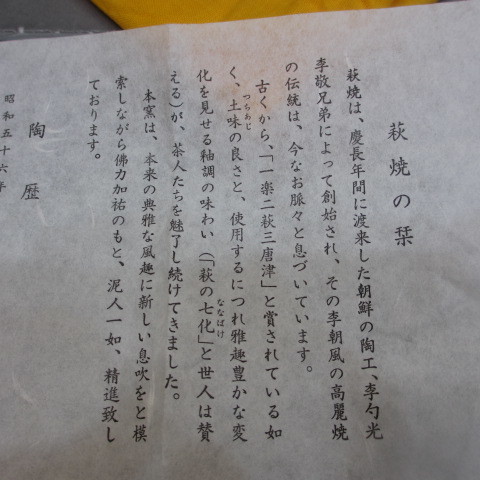 萩焼の栞
萩焼は、慶長年間に渡来した朝鮮の陶工、李勺光
李敬兄弟によって創始され、その李朝風の高麗焼
の伝統は、今なお脈々と息づいています。
古くから、「一楽二萩三唐津」と賞されている如
く、土味の良さと、使用するにつれ雅趣豊かな変
つちあじ
化を見せる釉調の味わい（「萩の七化」と世人は賛
ななばけ
える）が、茶人たちを魅了し続けてきました。
本窯は、本来の典雅な風趣に新しい息吹をと模
索しながら佛力加祐のもと、泥人一如、精進致し
ております。
陶歴
昭和五十六年